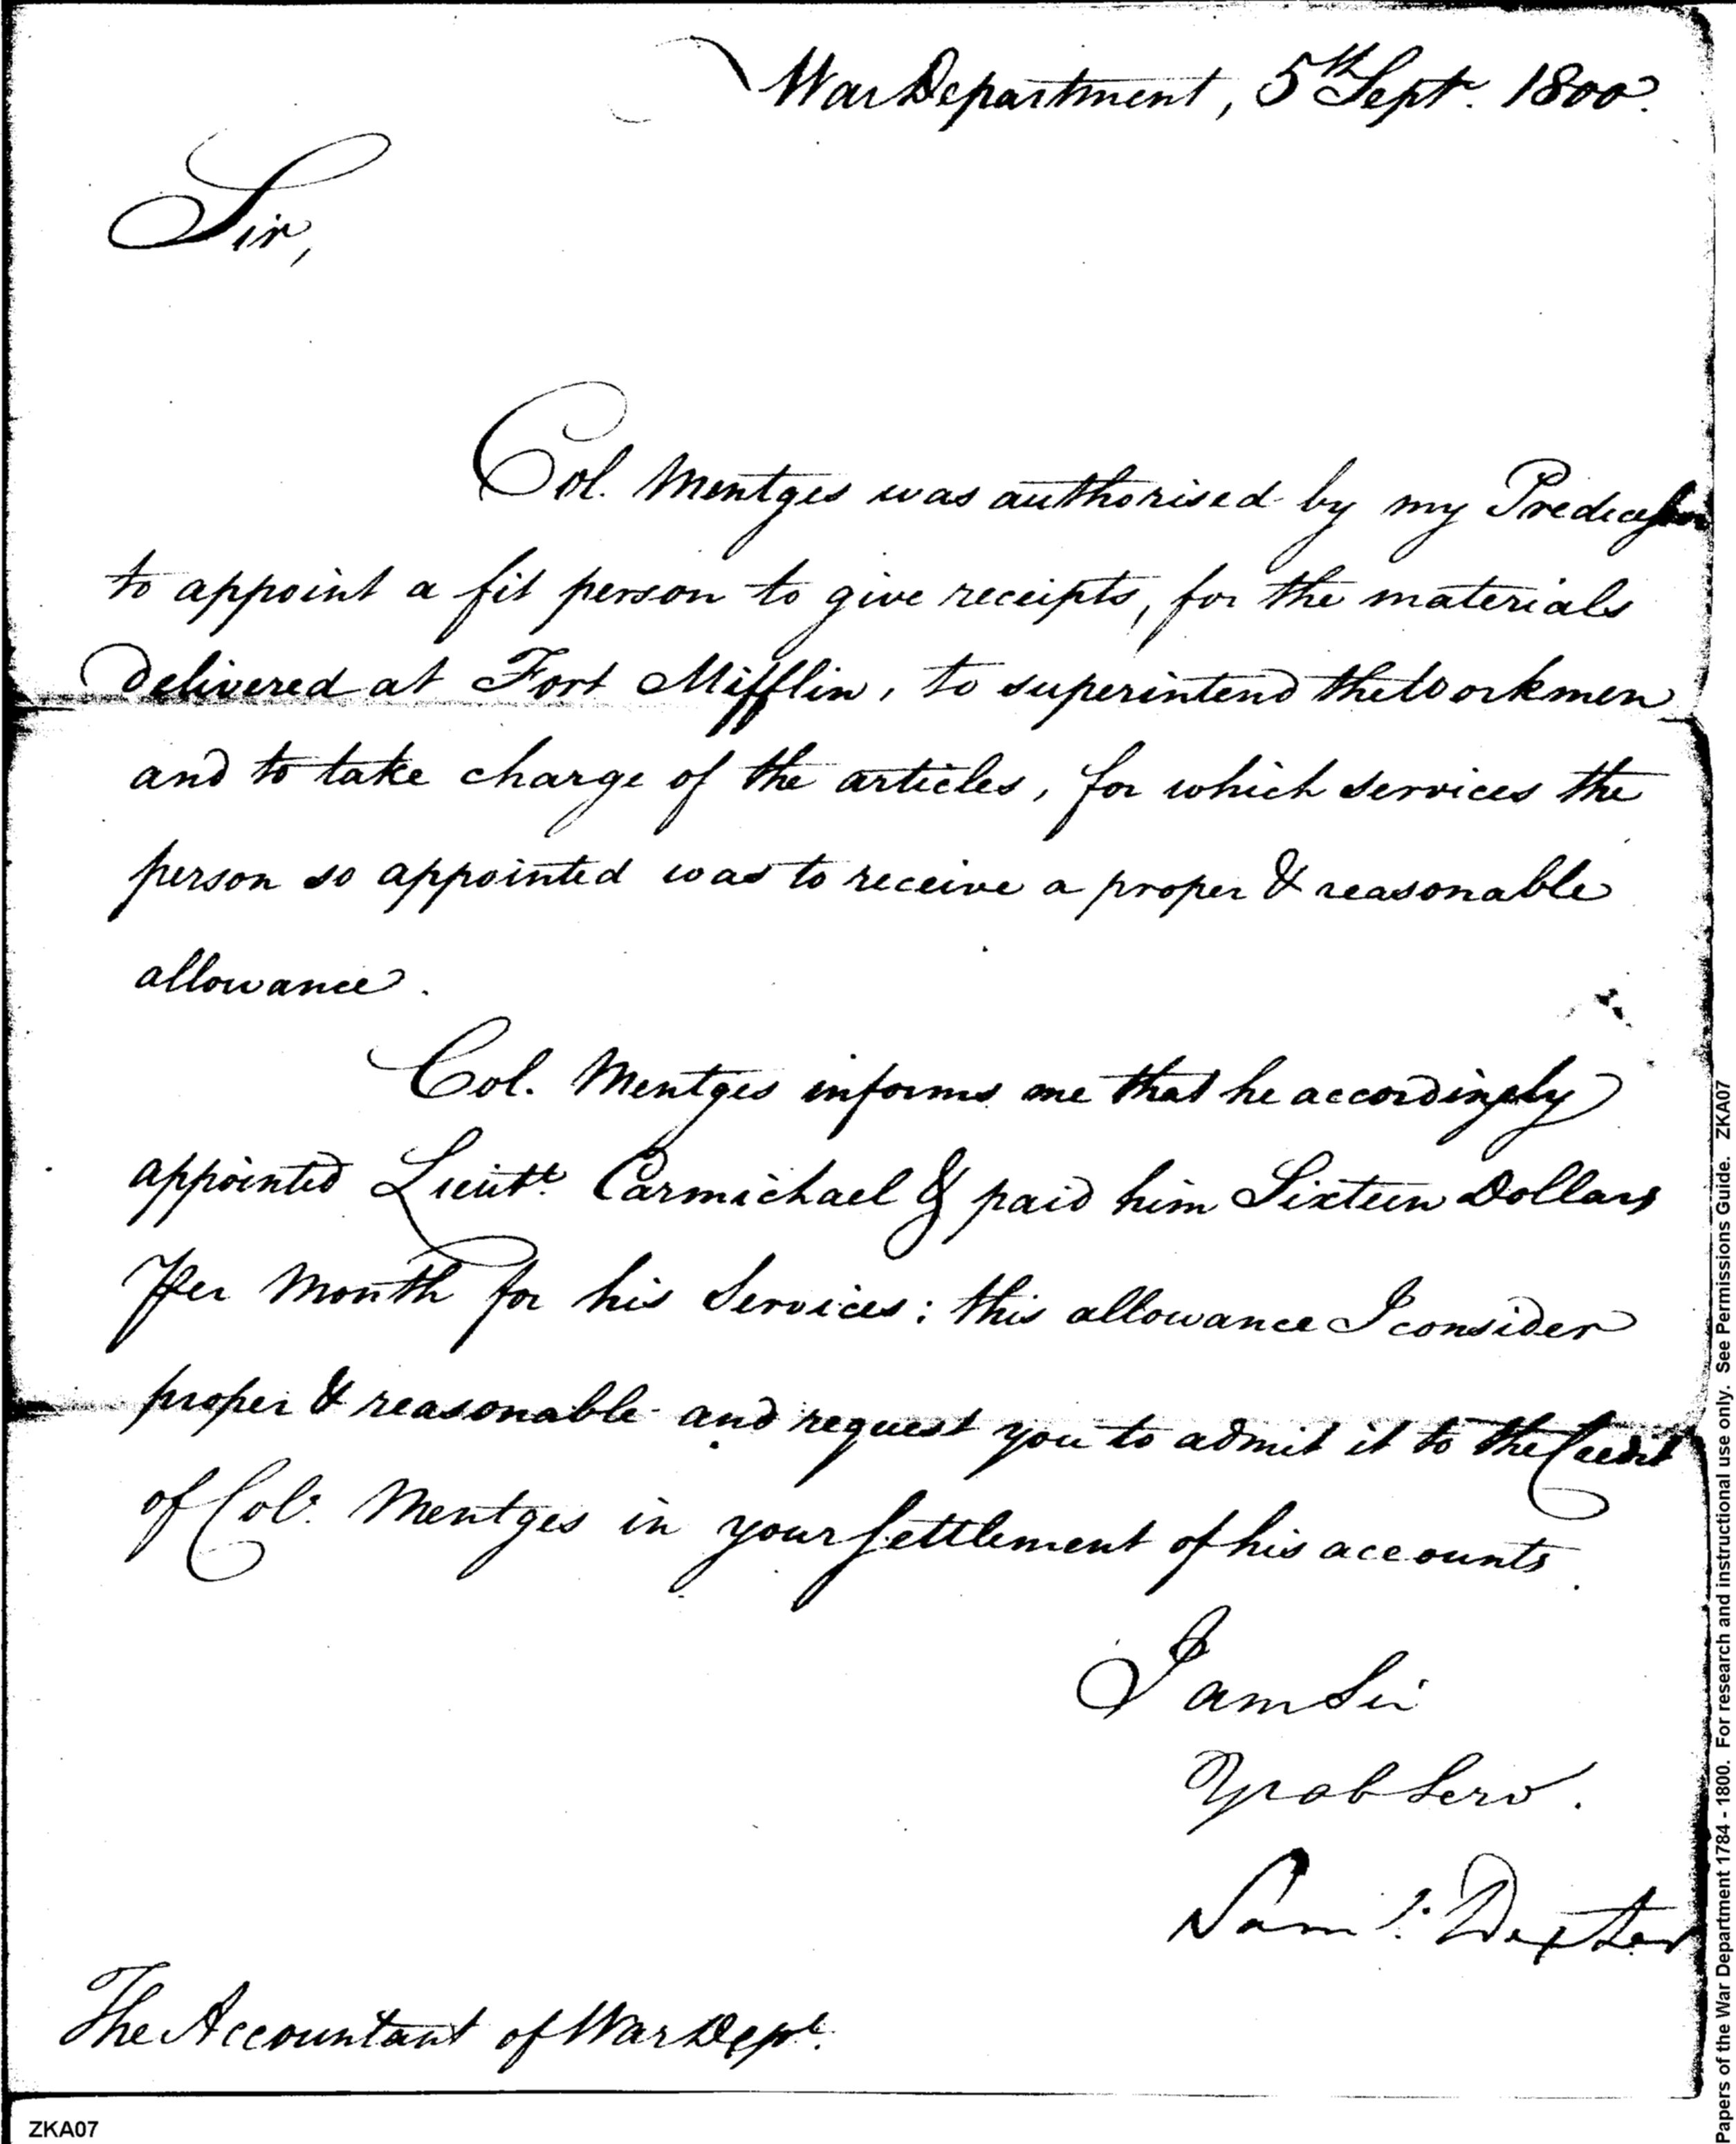 War Department, 5th Sept. 1800.
Sir,
Col. Mentges was authorised by my Predecessor
to appoint a fit person to give receipts, for the materials
delivered at Fort Mifflin, to superintend the Workmen
and to take charge of the articles, for which services the
person so appointed was to receive a proper & reasonable
allowance.
Col. Mentges informs me that he accordingly
appointed Lieutt. Carmichael & paid him Sixteen Dollars
Per Month for his Services: this allowance I consider
proper & reasonable and request you to admit it to the Credit
of Col. Mentges in your settlement of his accounts.
I am Sir
Yr ob Serv.
Saml. Dexter
The Accountant of War Dept.
ZKA07
Papers of the War Department 1784 - 1800. For research and instructional use only. See Permissions Guide. ZKA07